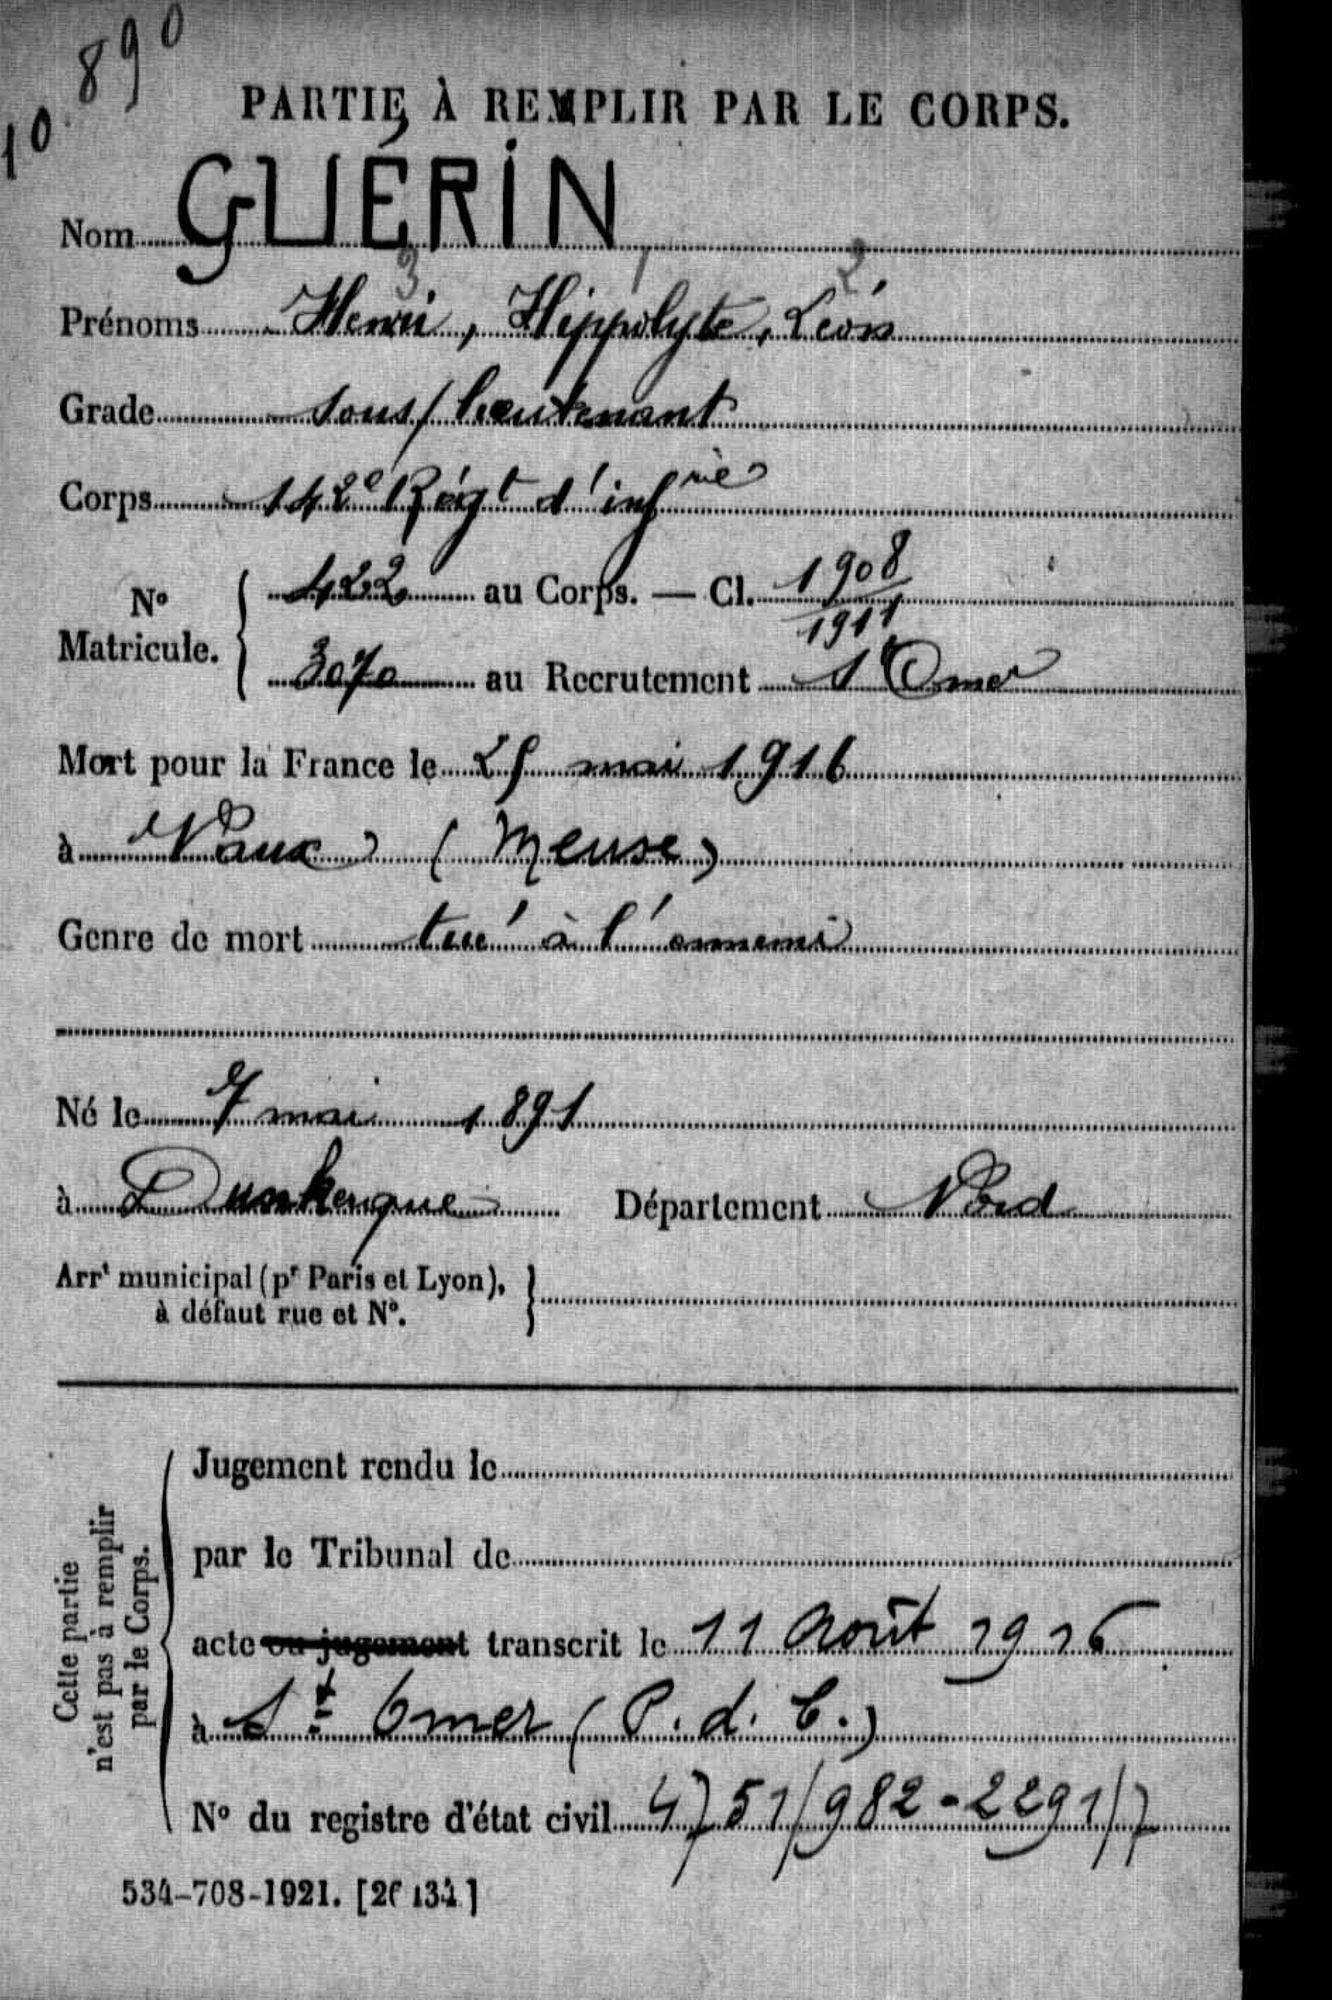 10.890
PARTIE À REMPLIR PAR LE CORPS.
Nom GUÉRIN
3 1 2
Prénoms Henri, Hippolyte, Léon
Grade Sous/lieutenant
Corps 142e Régt d'infrie
No Matricule. { 422 au Corps. — Cl. 1908/1911
3070 au Recrutement St Omer
Mort pour la France le 25 mai 1916
à Vaux (Meuse)
Genre de mort tué à l'ennemi
Né le 7 mai 1891
à Dunkerque Département Nord
Arrt municipal (pr Paris et Lyon), }
à défaut rue et No.
Cette partie
n'est pas à remplir
par le Corps.
Jugement rendu le
par le Tribunal de
acte ou jugement transcrit le 11 Août 1916
à St Omer (P. d. C.)
No du registre d'état civil 4751/982-2291/7
534-708-1921. [26134]